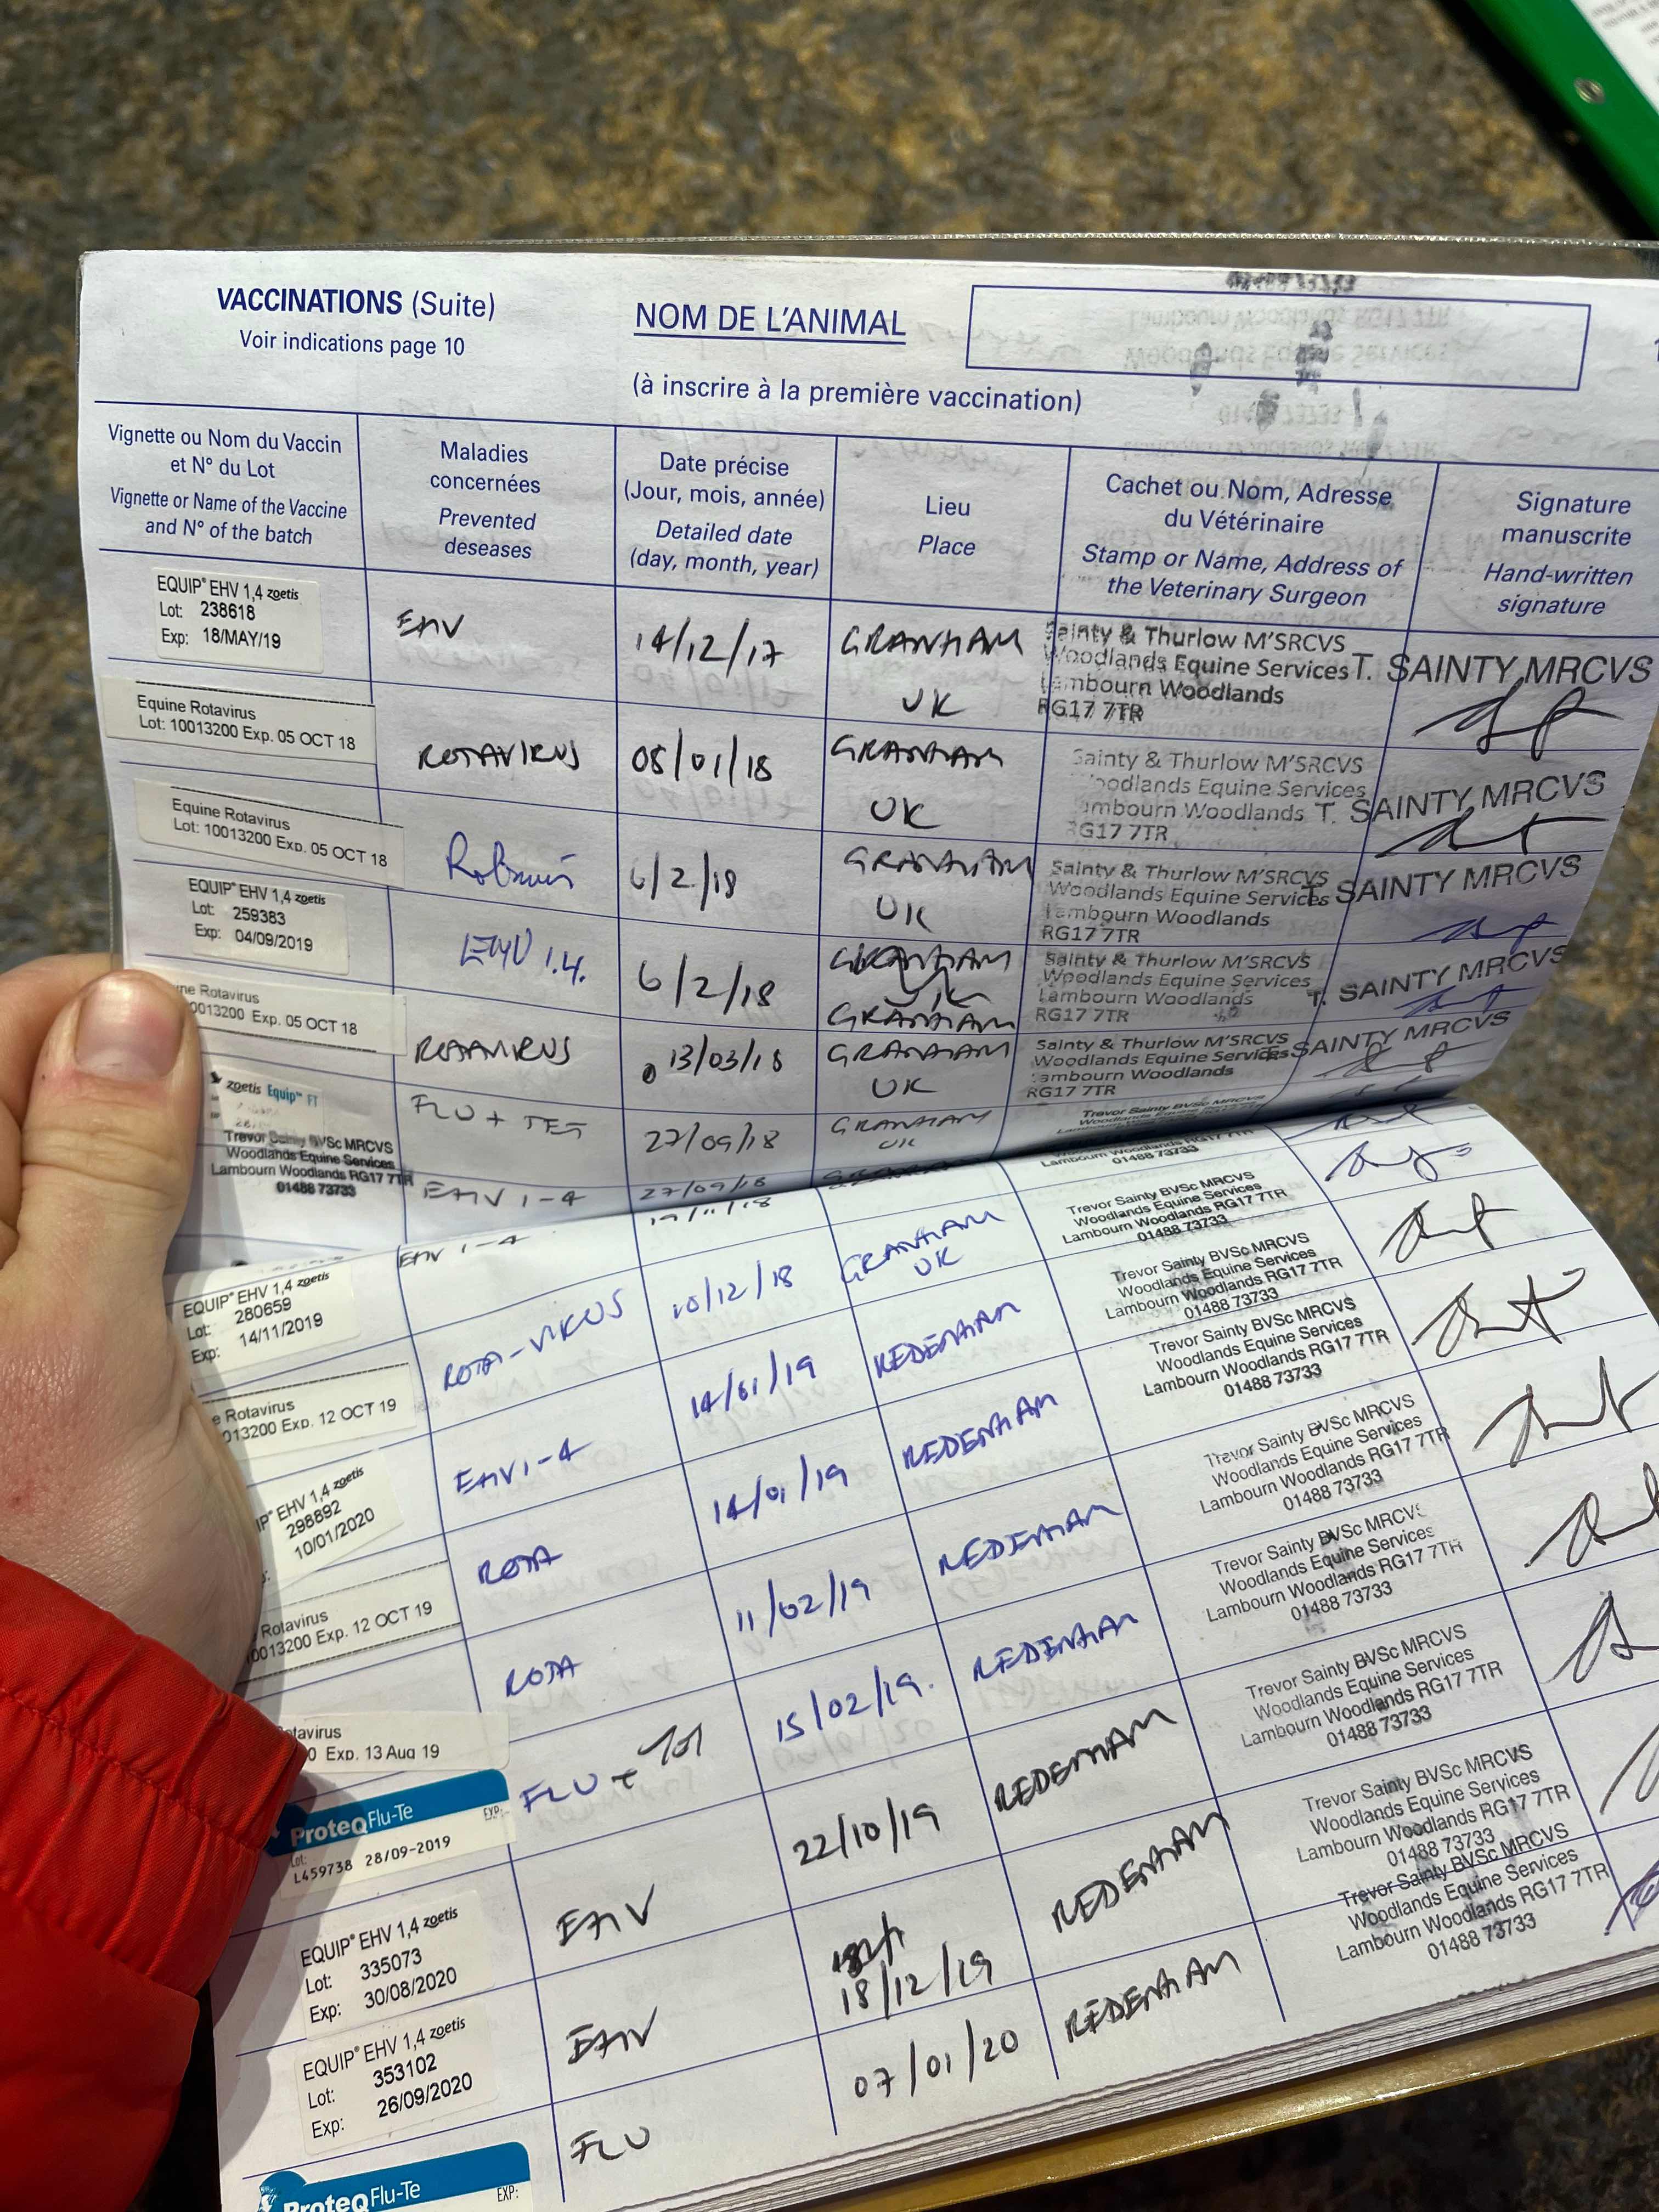 VACCINATIONS (Suite)
Voir indications page 10
NOM DE L'ANIMAL
(à inscrire à la première vaccination)
Vignette ou Nom du Vaccin
et N° du Lot
Vignette or Name of the Vaccine
and N° of the batch
Maladies
concernées
Prevented
deseases
Date précise
(Jour, mois, année)
Detailed date
(day, month, year)
Lieu
Place
Cachet ou Nom, Adresse
du Vétérinaire
Stamp or Name, Address of
the Veterinary Surgeon
Signature
manuscrite
Hand-written
signature
EQUIP® EHV 1,4 zoetis
Lot: 238618
Exp: 18/MAY/19
EHV
14/12/17
GRANHAM
UK
Sainty & Thurlow M'SRCVS
Woodlands Equine Services
Lambourn Woodlands
RG17 7TR
T. SAINTY MRCVS
Equine Rotavirus
Lot: 10013200 Exp. 05 OCT 18
ROTAVIRUS
08/01/18
GRANHAM
UK
Sainty & Thurlow M'SRCVS
Woodlands Equine Services
Lambourn Woodlands
RG17 7TR
T. SAINTY MRCVS
Equine Rotavirus
Lot: 10013200 Exp. 05 OCT 18
6/2/18
GRANHAM
UK
Sainty & Thurlow M'SRCVS
Woodlands Equine Services
Lambourn Woodlands
RG17 7TR
T. SAINTY MRCVS
EQUIP® EHV 1,4 zoetis
Lot: 259383
Exp: 04/09/2019
EHV 1.4.
6/2/18
GRANHAM
UK
GRANHAM
Sainty & Thurlow M'SRCVS
Woodlands Equine Services
Lambourn Woodlands
RG17 7TR
T. SAINTY MRCVS
ne Rotavirus
0013200 Exp. 05 OCT 18
ROTAVIRUS
13/03/18
GRANHAM
UK
Sainty & Thurlow M'SRCVS
Woodlands Equine Services
Lambourn Woodlands
RG17 7TR
T. SAINTY MRCVS
zoetis Equip™ FT
Trevor Sainty BVSc MRCVS
Woodlands Equine Services
Lambourn Woodlands RG17 7TR
01488 73733
FLU + TET
27/09/18
GRANHAM
UK
Trevor Sainty BVSc MRCVS
EHV 1-4
27/09/18
EHV 1-4
19/11/18
Woodlands Equine Services
Lambourn Woodlands RG17 7TR
01488 73733
EQUIP® EHV 1,4 zoetis
Lot: 280659
Exp: 14/11/2019
ROTA-VIRUS
10/12/18
GRANHAM
UK
Trevor Sainty BVSc MRCVS
Woodlands Equine Services
Lambourn Woodlands RG17 7TR
01488 73733
e Rotavirus
013200 Exp. 12 OCT 19
EHV 1-4
14/01/19
REDENHAM
Trevor Sainty BVSc MRCVS
Woodlands Equine Services
Lambourn Woodlands RG17 7TR
01488 73733
IP® EHV 1,4 zoetis
298892
10/01/2020
ROTA
14/01/19
REDENHAM
Trevor Sainty BVSc MRCVS
Woodlands Equine Services
Lambourn Woodlands RG17 7TR
01488 73733
Rotavirus
0013200 Exp. 12 OCT 19
ROTA
11/02/19
REDENHAM
Trevor Sainty BVSc MRCVS
Woodlands Equine Services
Lambourn Woodlands RG17 7TR
01488 73733
otavirus
0 Exp. 13 Aug 19
FLU +
15/02/19.
REDENHAM
Trevor Sainty BVSc MRCVS
Woodlands Equine Services
Lambourn Woodlands RG17 7TR
01488 73733
ProteqFlu-Te
Lot: EXP:
L459738 28/09-2019
EHV
22/10/19
REDENHAM
Trevor Sainty BVSc MRCVS
Woodlands Equine Services
Lambourn Woodlands RG17 7TR
01488 73733
EQUIP® EHV 1,4 zoetis
Lot: 335073
Exp: 30/08/2020
EHV
18/12/19
REDENHAM
Trevor Sainty BVSc MRCVS
Woodlands Equine Services
Lambourn Woodlands RG17 7TR
01488 73733
EQUIP® EHV 1,4 zoetis
Lot: 353102
Exp: 26/09/2020
FLU
07/01/20
REDENHAM
Trevor Sainty BVSc MRCVS
Woodlands Equine Services
Lambourn Woodlands RG17 7TR
01488 73733
ProteqFlu-Te
EXP: